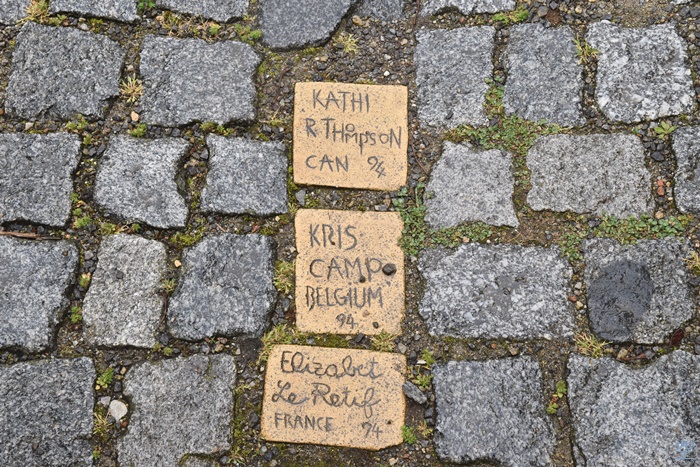 KATHI
R. THOMPSON
CAN 94
KRIS
CAMP
BELGIUM
94
Elizabet
Le Retif
FRANCE 94